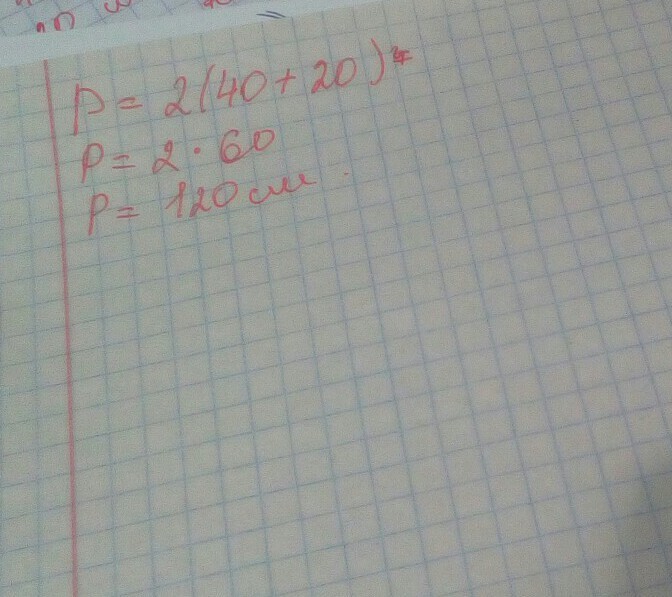 P = 2(40 + 20)
P = 2 · 60
P = 120 см